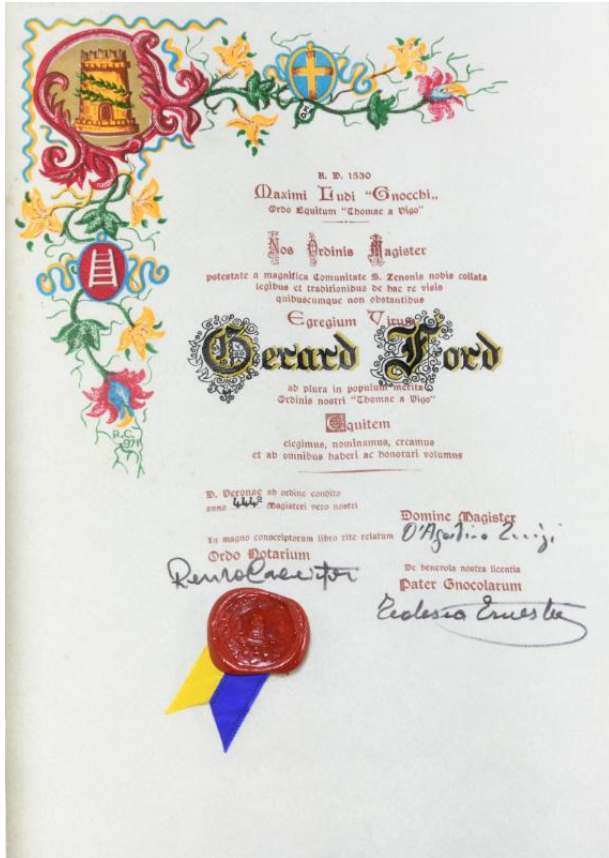 A. D. 1530
Maximi Ludi "Gnocchi„
Ordo Equitum "Thomae a Vigo"
Nos Ordinis Magister
potestate a magnifica Comunitate S. Zenonis nobis collata
legibus et traditionibus de hac re visis
quibuscumque non obstantibus
Egregium Virum
Gerard Ford
ob plura in populum merita
Ordinis nostri "Thomae a Vigo"
Equitem
elegimus, nominamus, creamus
et ab omnibus haberi ac honorari volumus
D. Veronae ab ordine condito
anno 444º Magisteri vero nostri
Domine Magister
D'Agostino Luigi
In magno conscriptorum libro rite relatum
Ordo Notarium
De benevola nostra licentia
Pater Gnocolarum
Tedesco Ernesto
R.C.